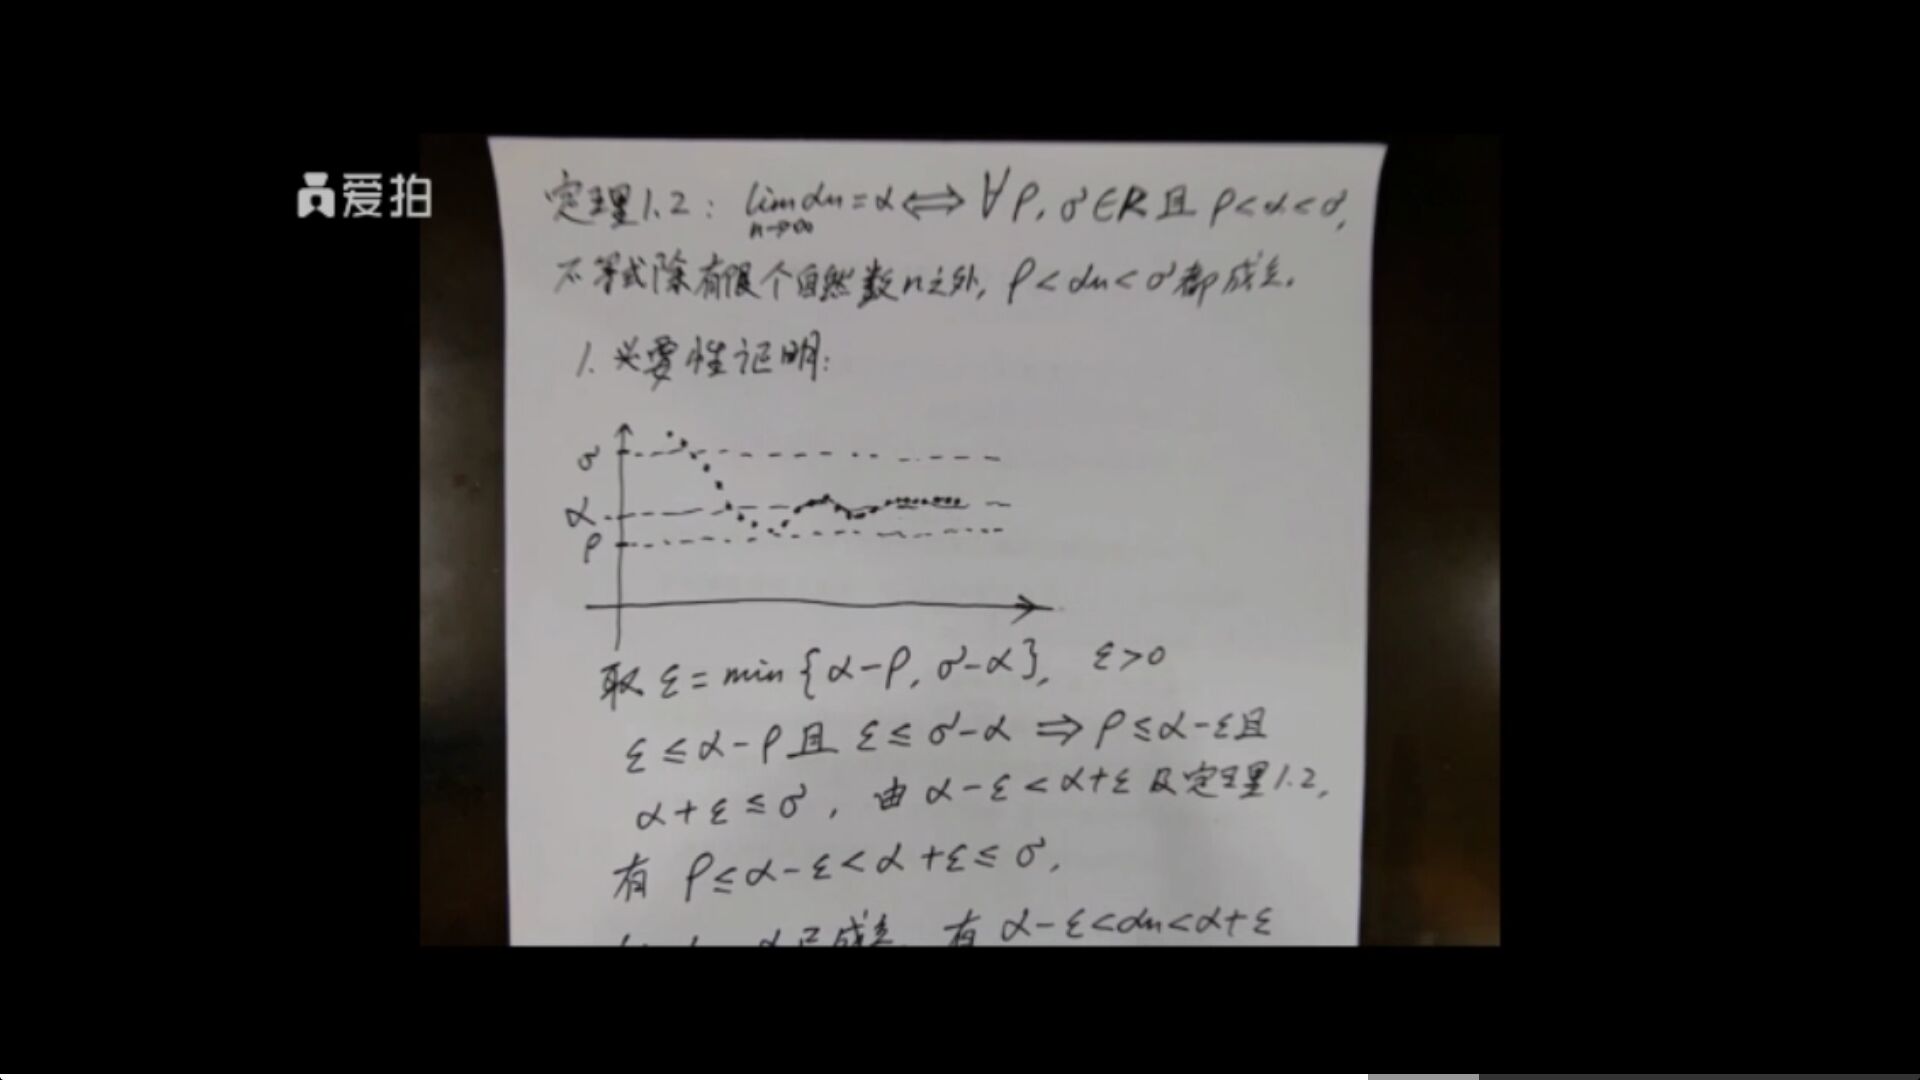 爱拍
定理1.2: lim αn = α ⟺ ∀ρ, σ∈R 且 ρ<α<σ,
n→∞
不等式除有限个自然数n之外, ρ<αn<σ都成立.
1. 必要性证明:
σ
α
ρ
取 ε = min {α-ρ, σ-α}, ε>0
ε ≤ α-ρ 且 ε ≤ σ-α ⇒ ρ≤α-ε且
α+ε ≤ σ, 由 α-ε < α+ε 及定理1.2,
有 ρ≤α-ε<α+ε≤σ,
成立, 有 α-ε<αn<α+ε